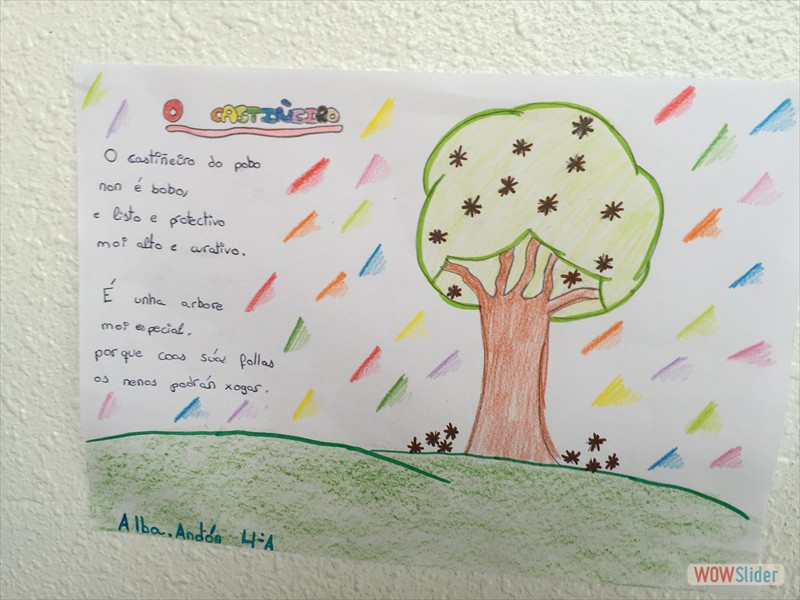 O CASTIÑEIRO
O castiñeiro do pobo
non é bobo,
e listo e protectivo
moi alto e curativo.
É unha arbore
moi especial.
porque coas súas follas
os nenos podrán xogar.
Alba. Andón 4-A
WOWSlider